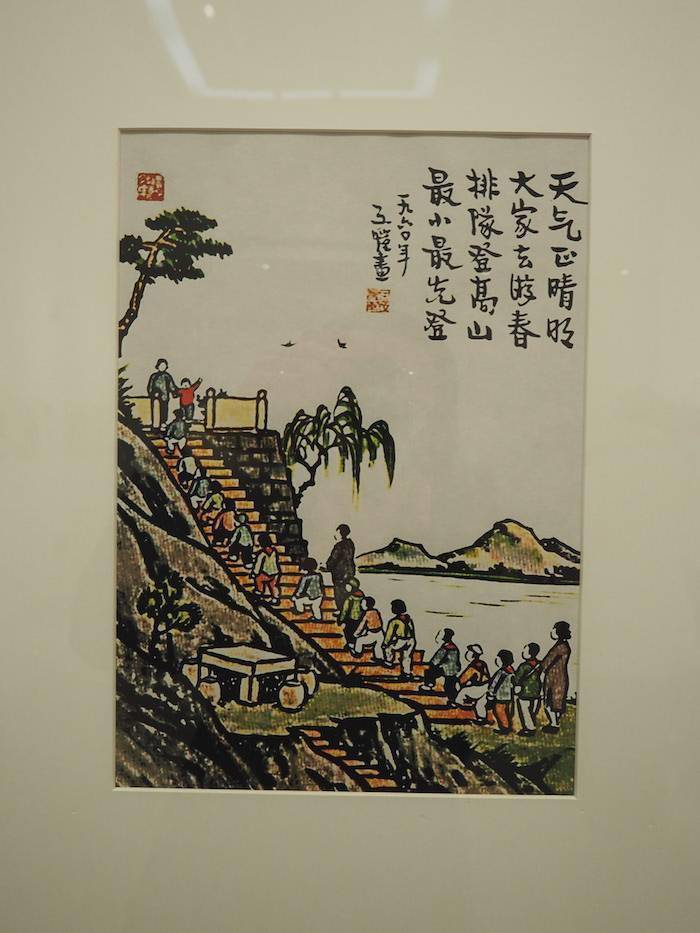 天气正晴明
大家去游春
排隊登高山
最小最先登
一九六〇年
子愷畫